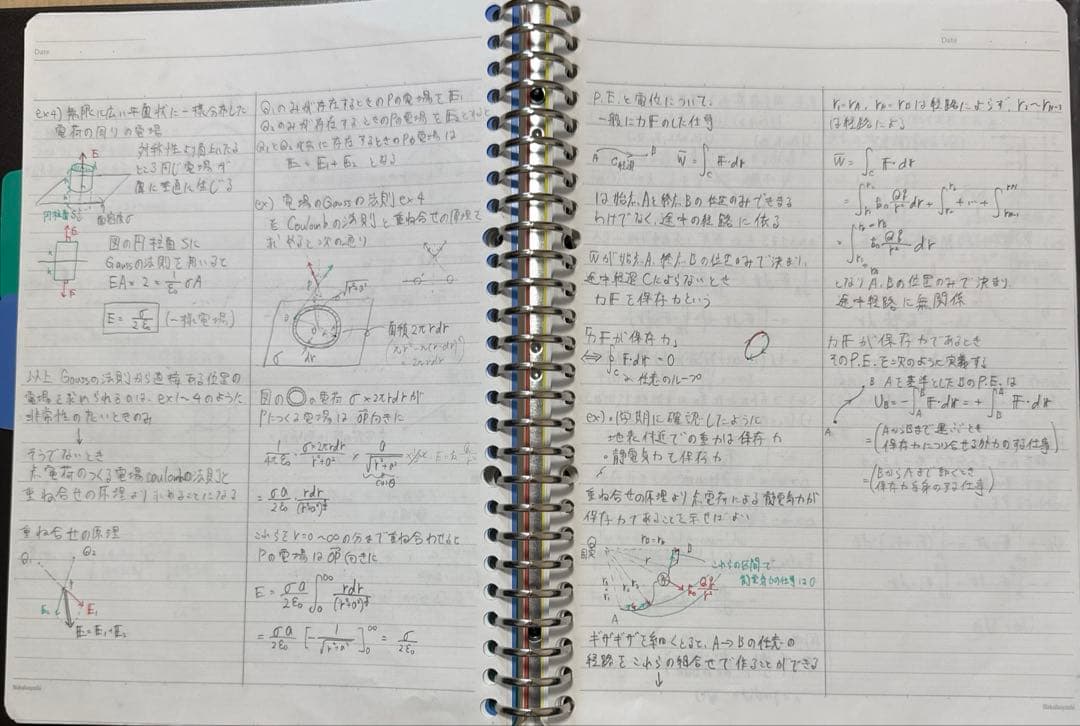 Date
ex4) 無限に広い平面状に一様分布した
電荷の周りの電場
対称性より
同じ電場が
面に垂直に生じる
円柱面S
面密度σ
図の円柱面Sに
Gaussの法則を用いると
EA × 2 = 1/ε₀ σA
E = σ/2ε₀ (一様電場)
以上 Gaussの法則から直接ある位置の
電場を求められるのは、ex1〜4のように
対称性の
↓
そうでないとき
点電荷のつくる電場 coulombの法則と
重ね合せの原理より求めることになる
重ね合せの原理
Q₁
Q₂
P
E₂
E₁
E = E₁ + E₂
Q₁のみが存在するときのPの電場をE₁
Q₂のみが存在するときのPの電場をE₂とすると
Q₁とQ₂が共に存在するときのPの電場は
E = E₁ + E₂ となる
ex) 電場のGaussの法則 ex4
を Coulombの法則と重ね合せの原理で
次の通り
P
√r²+a²
σ
dr
面積 2πrdr
図の◎の電荷 σ × 2πrdr が
Pにつくる電場は 向きに
1/4πε₀ · σ·2πrdr/r²+a² × a/√r²+a²
cosθ
= σa/2ε₀ · rdr/(r²+a²)^3/2
これらをr=0〜∞の分まで重ね合わせると
Pの電場は 向きに
E = σa/2ε₀ ∫₀^∞ rdr/(r²+a²)^3/2
= σa/2ε₀ [-1/√r²+a²]₀^∞ = σ/2ε₀
P.E.と電位について
一般に力Fのした仕事
A
B
C
W = ∫_C F·dr
は始点Aと終点Bの位置のみできまる
わけでなく、途中の経路に依る
Wが始点A、終点Bの位置のみで決まり、
途中経路Cによらないとき
力Fを保存力という
力Fが保存力
⇔ ∮_C F·dr = 0
任意のループ
ex)・ 期に確認したように
地表付近での重力は保存力
・静電気力も保存力
重ね合せの原理より点電荷による静電気力が
保存力であることを示せばよい
Q
固定
A
B
これらの区間で
静電気力の仕事は0
k₀ Qq/r²
ギザギザを細くとると、A→Bの任意の
経路をこれらの組合せで作ることができる
↓
Date
は経路による
W = ∫_C F·dr
= ∫ k₀ Qq/r² dr + ∫ + … + ∫
= ∫ k₀ Qq/r² dr
となりA、Bの位置のみで決まり、
途中経路に無関係
力Fが保存力であるとき
そのP.E.を次のように定義する
B
A
Aを基準としたBのP.E.は
U_B = -∫_A^B F·dr = +∫_B^A F·dr
= (AからBまで運ぶとき
保存力につりあわせる外力のする仕事)
= (BからAまで動くとき
保存力自身のする仕事)